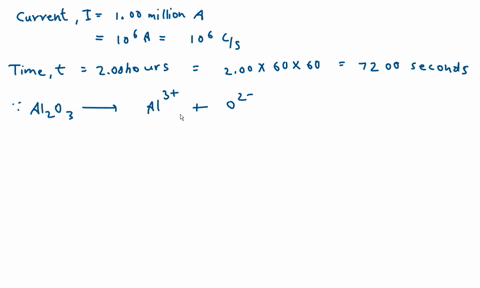 Current, I = 1.00 million A
= 10⁶ A = 10⁶ C/s
Time, t = 2.00 hours = 2.00 × 60 × 60 = 7200 seconds
∵ Al₂O₃ ⟶ Al³⁺ + O²⁻